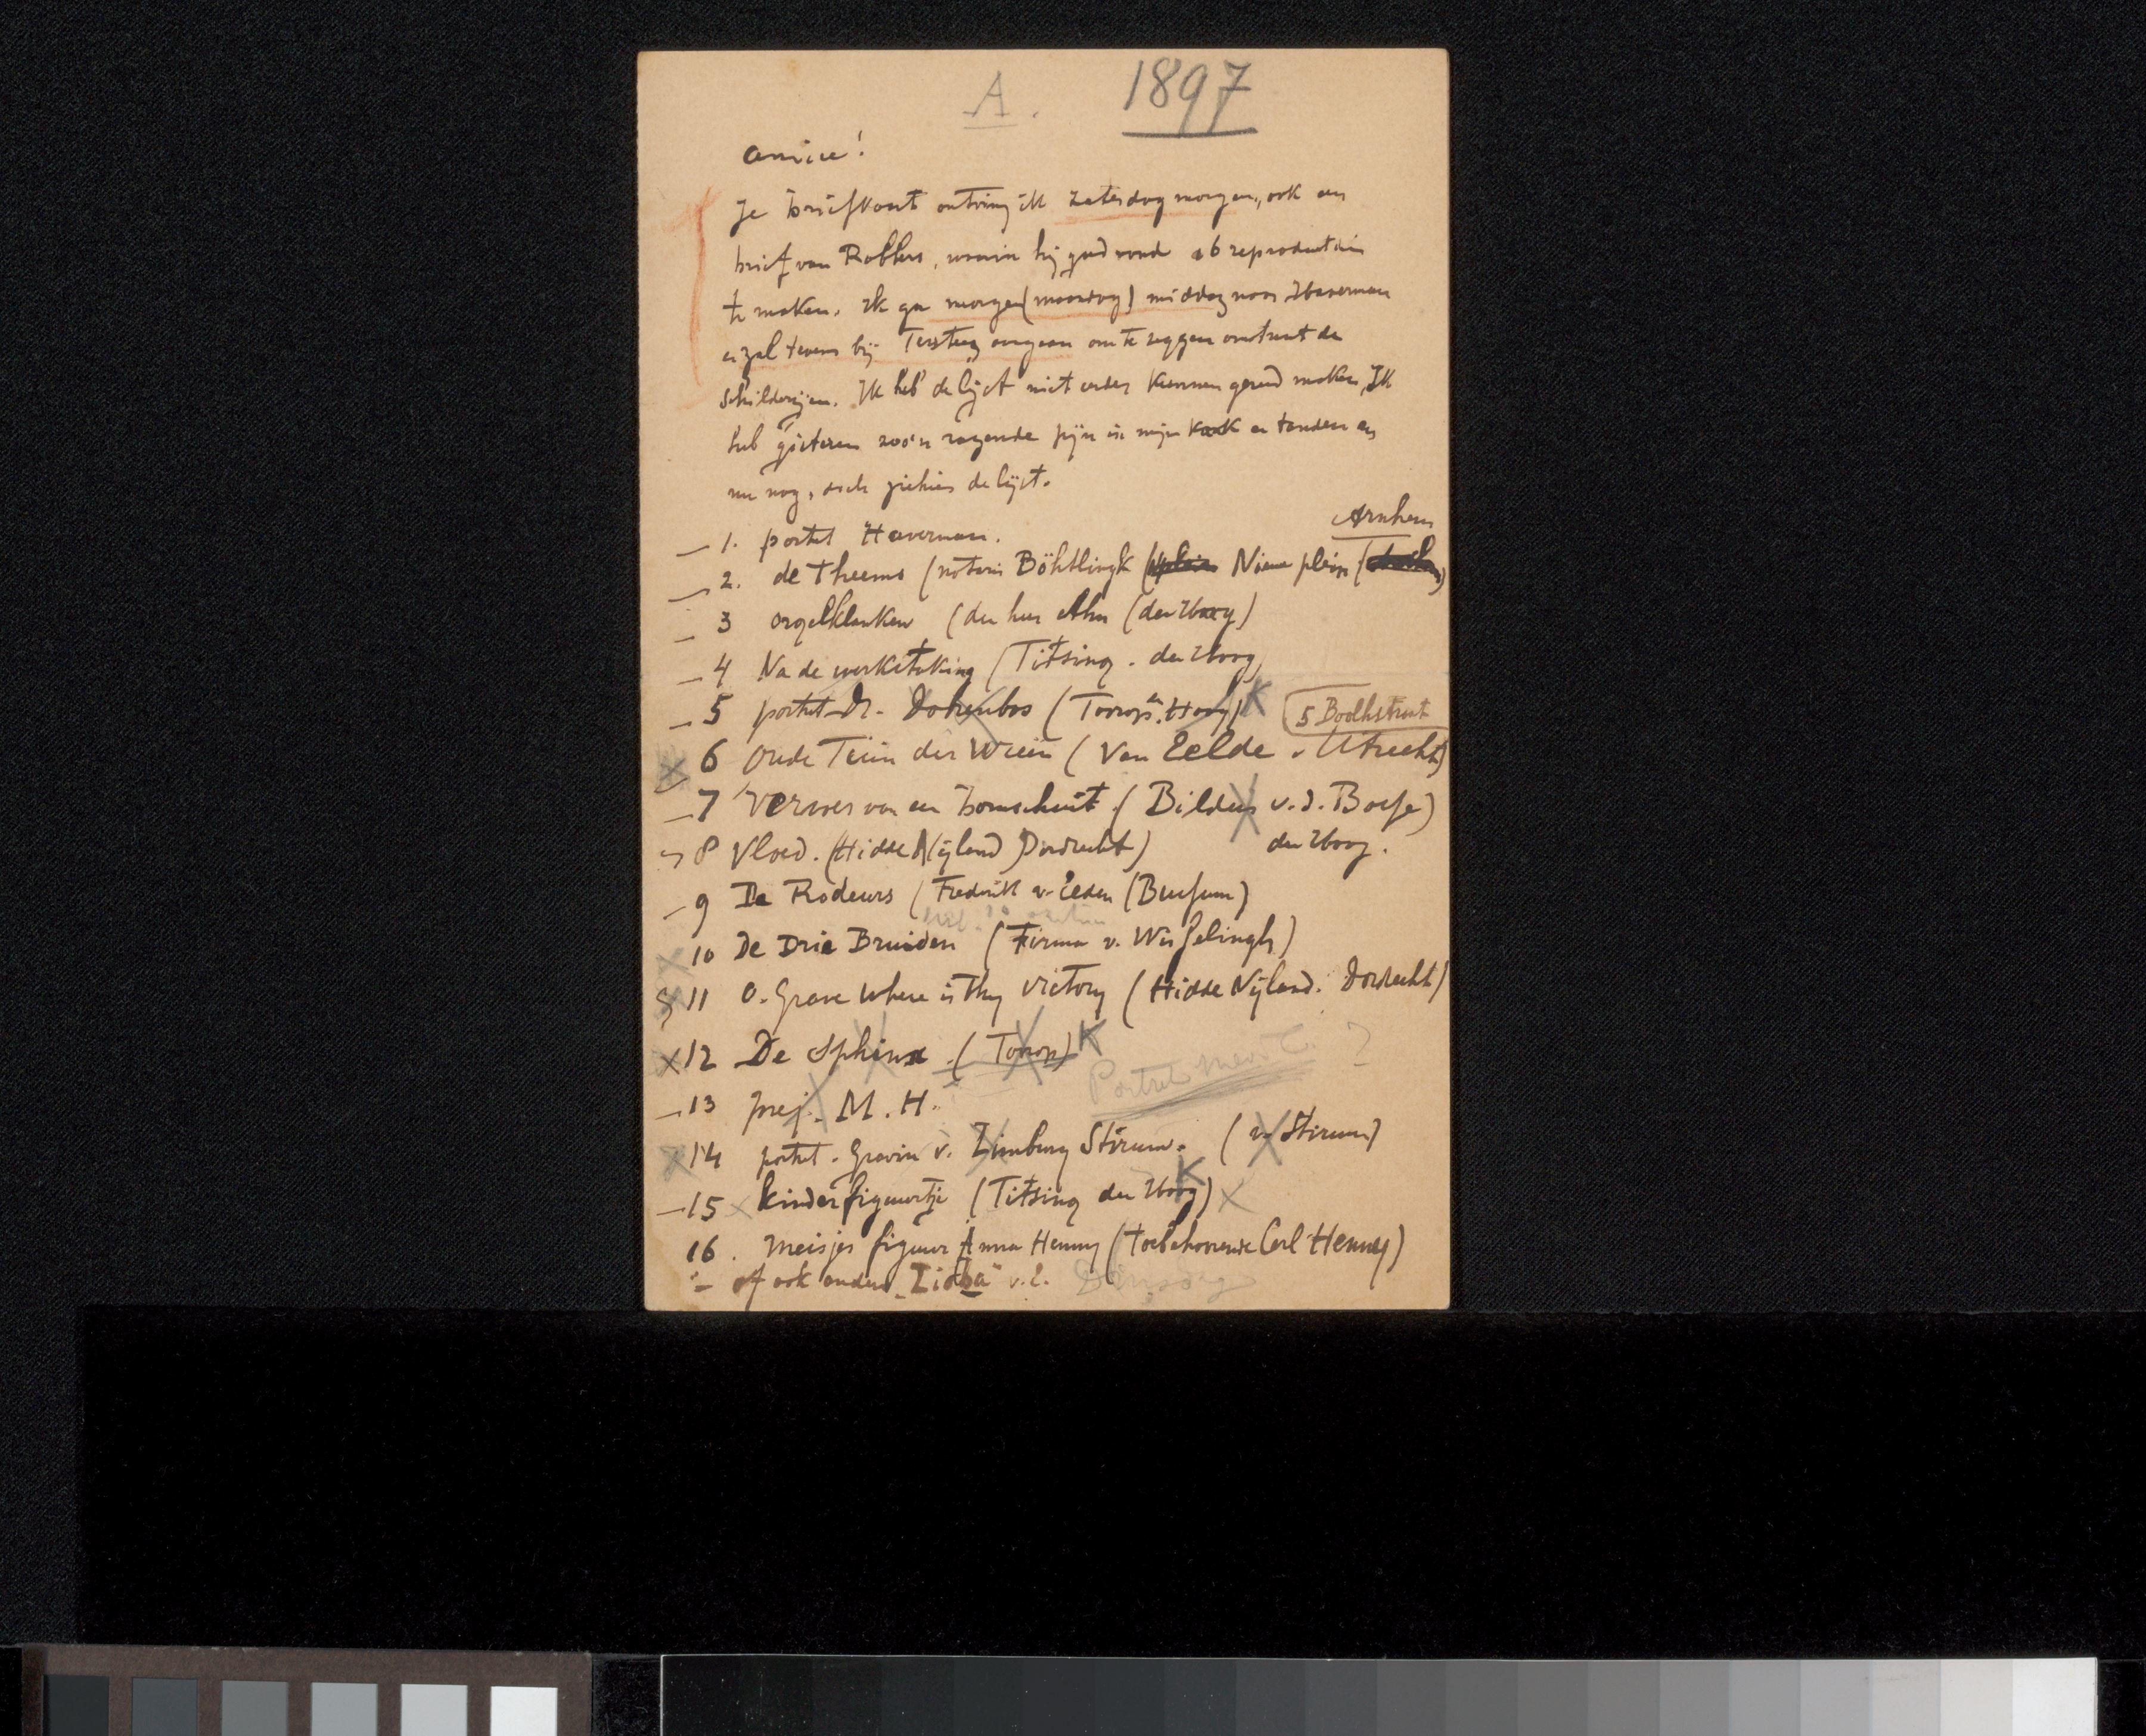 A. 1897
Amice!
Je briefkaart ontving ik Zaterdag morgen, ook een
brief van Robbers, waarin hij goed vond 26 reproductiën
te maken. Ik ga morgen (maandag) middag naar Haverman
en zal tevens bij Tersteeg aangaan om te zeggen omtrent de
schilderijen. Ik heb de lijst niet eerder kunnen gereed maken, Ik
heb gisteren zoo'n razende pijn in mijn kaak en tanden en
nu nog, ziehier de lijst.
1. portet Haverman. Arnhem
2. de Theems (notaris Böhtlingk Nieuwe plein
3 orgelklanken (den heer (den Haag)
4 Na de werkstaking (Titsing. den Haag
5 portet Dr. Dolenbos (Toorop. den Haag) K 5 Boothstraat
6 Oude Tuin der Weeën (Van Eelde. Utrecht)
7 Verwes van een bomschuit. (Bilders v.d. Bosse)
8 Vloed. (Hidde Nijland Dordrecht) den Haag.
9 De Rodeurs (Frederik v. Eeden (Bussum)
10 De Drie Bruiden (Firma v. Wisselingh)
11 O. Grave where is Thy Victory (Hidde Nijland. Dordrecht)
12 De Sphinx. (Toorop) K
Portret ?
13 mej. M. H.
14 portet. Gravin v. Limburg Stirum. (v. Stirum)
15 kinderfiguurtje (Titsing den Haag) K
16. Meisjes figuur Anna Henny (toebehoorende Carl Henny)
of ook ander "Lioba" v. E. Dinsdag